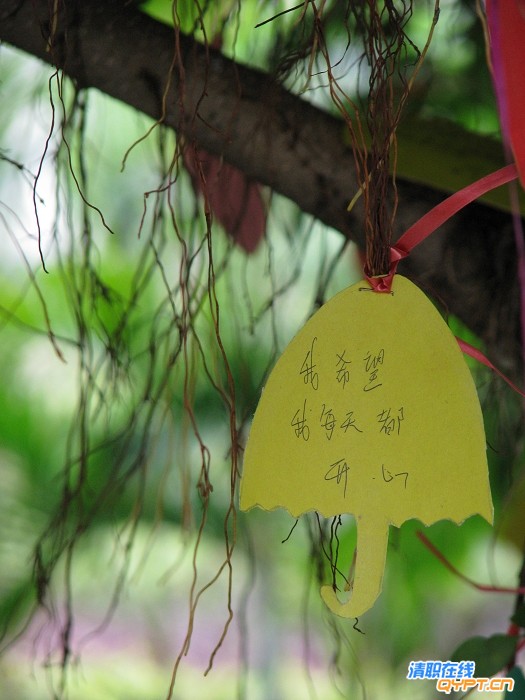 我希望
我每天都
开心
清职在线
QYPT.CN